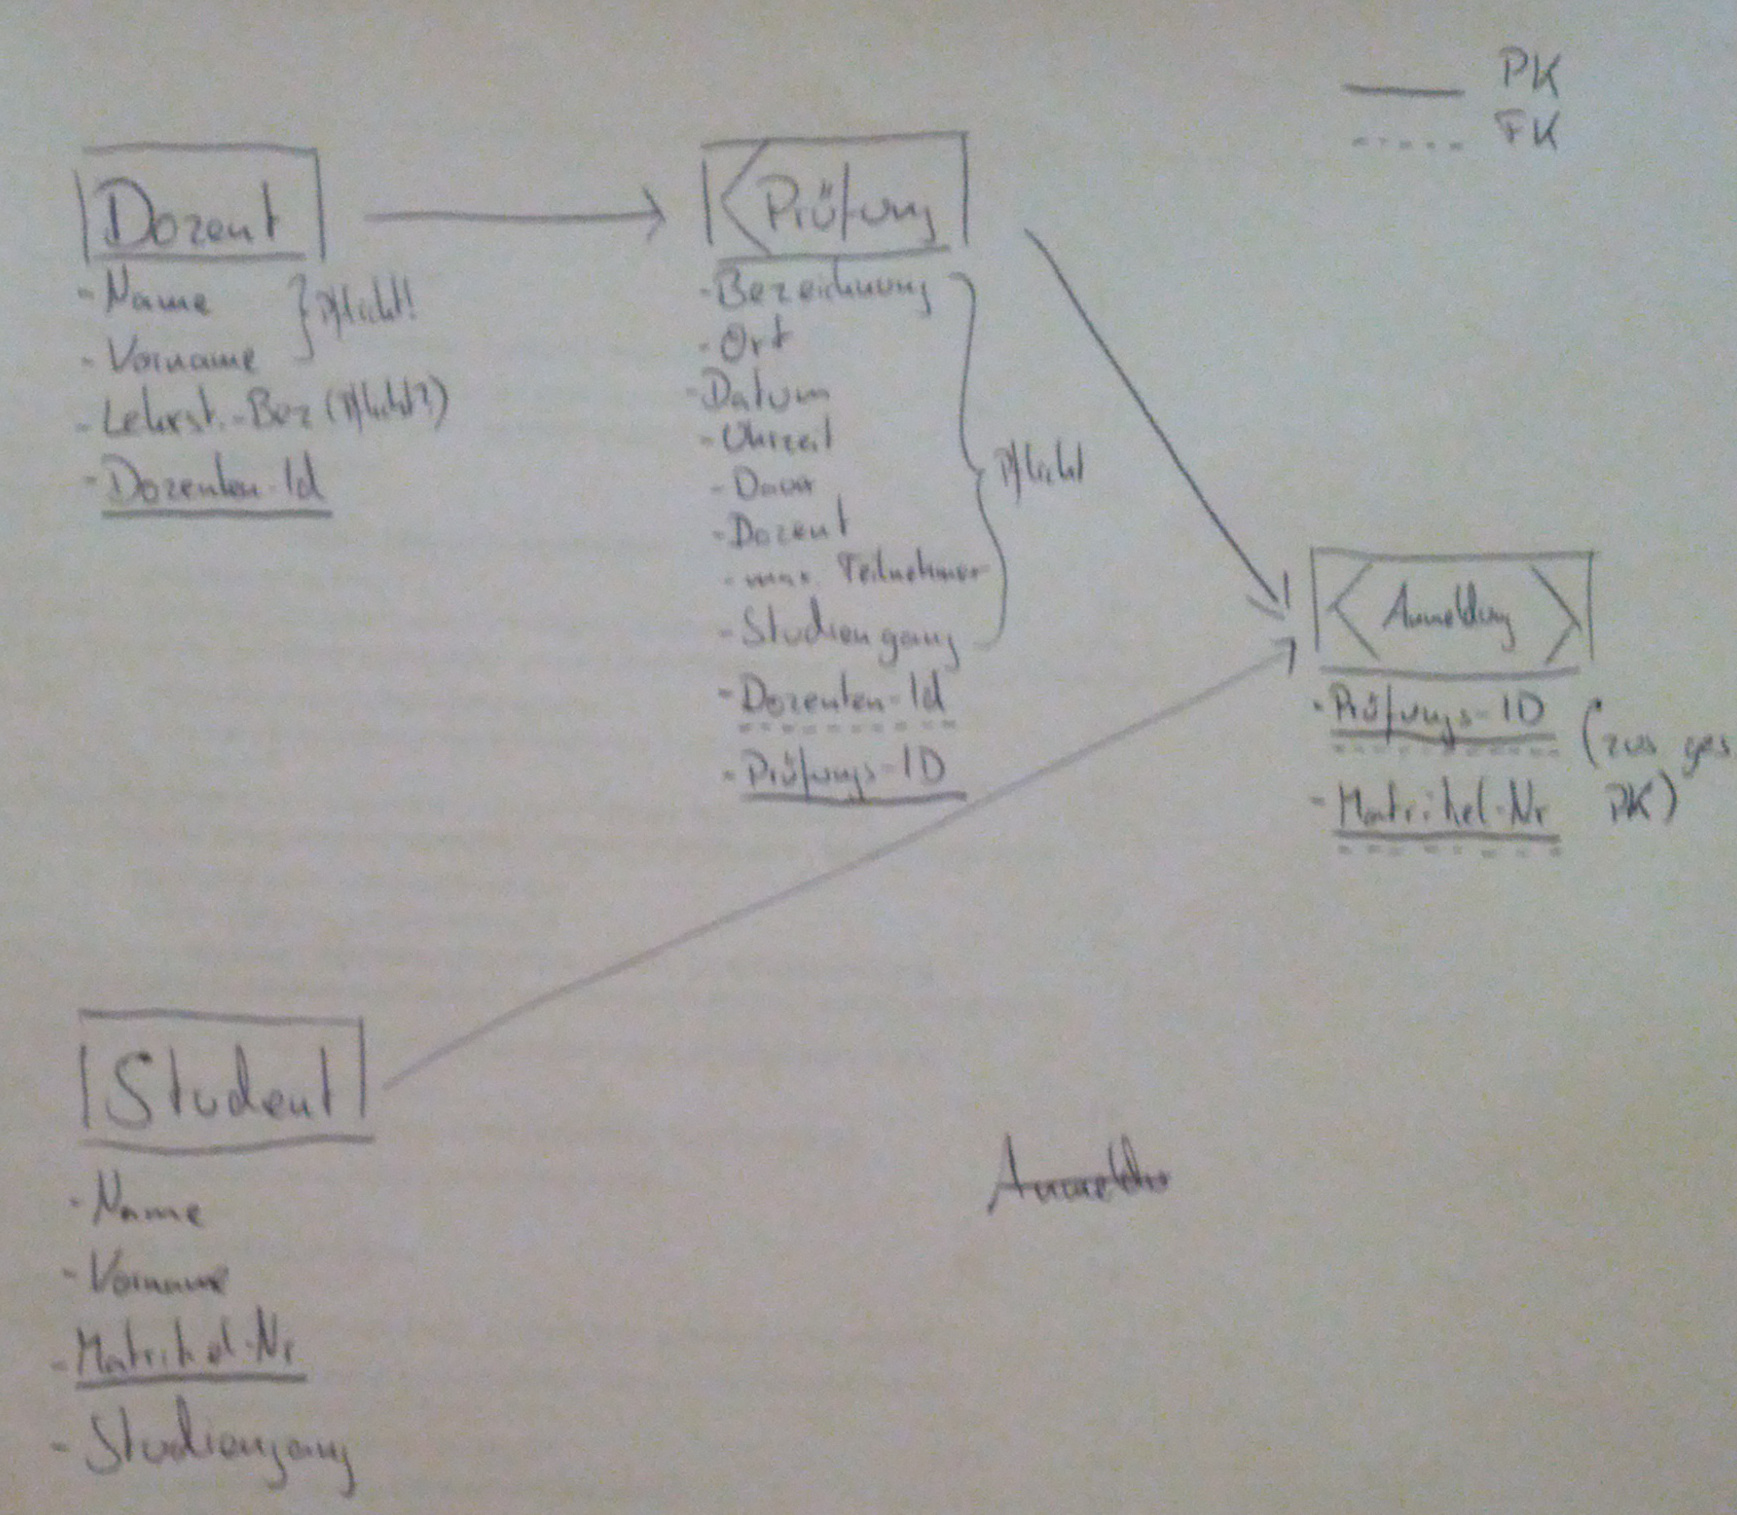 PK
FK
Dozent
- Name
- Vorname
} Pflicht!
- Lehrst.-Bez (Pflicht?)
- Dozenten-Id
Prüfung
- Bezeichnung
- Ort
- Datum
- Uhrzeit
- Dauer
- Dozent
- max. Teilnehmer
- Studiengang
} Pflicht
- Dozenten-Id
- Prüfungs-ID
Anmeldung
- Prüfungs-ID
- Matrikel-Nr
(zus ges
PK)
Student
- Name
- Vorname
- Matrikel-Nr
- Studiengang